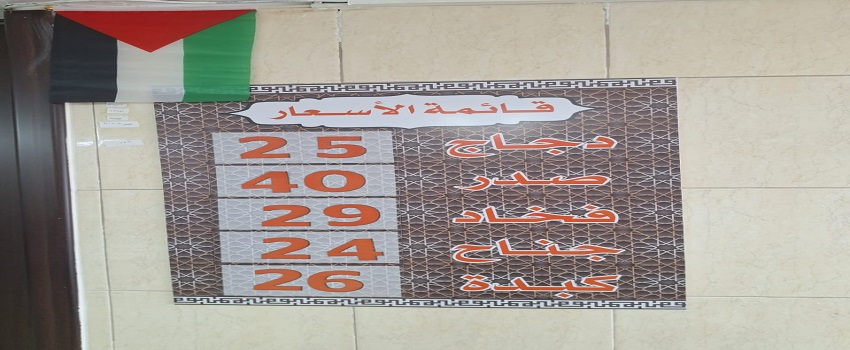 قائمة الأسعار
دجاج 25
صدر 40
فخاد 29
جناح 24
كبدة 26